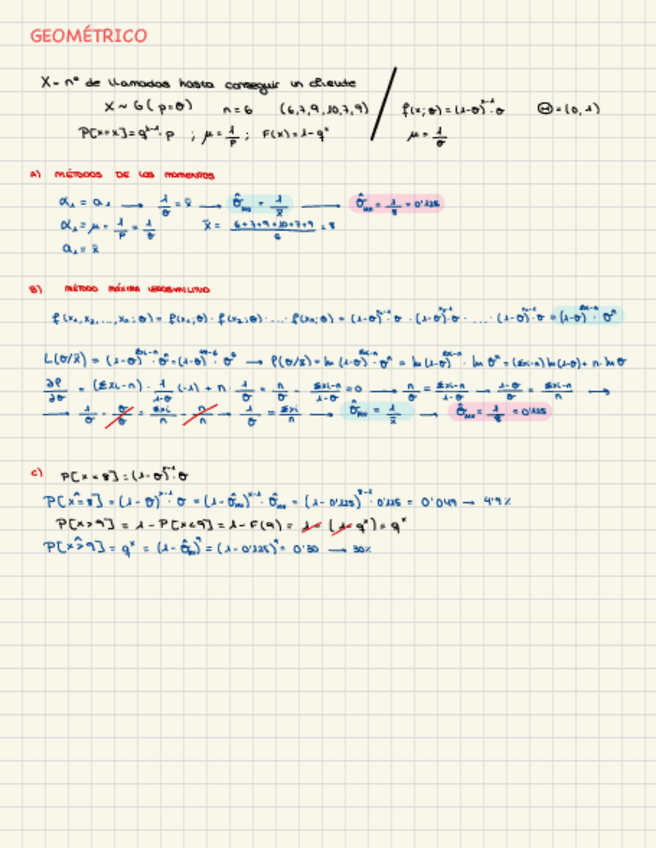 GEOMÉTRICO
X = nº de llamadas hasta conseguir un cliente
X ~ G(p=θ) n=6 (6,7,9,10,7,9) f(x;θ) = (1-θ)^(x-1)·θ Θ = (0,1)
P[X=x] = q^(x-1)·p ; μ = 1/p ; F(x) = 1-q^x μ = 1/θ
A) MÉTODOS DE LOS MOMENTOS
α₁ = a₁ → 1/θ = x̄ → θ̂ = 1/x̄ → θ̂ = 1/8 = 0'125
α₁ = μ = 1/p = 1/θ x̄ = (6+7+9+10+7+9)/6 = 8
a₁ = x̄
B) MÉTODO MÁXIMA VEROSIMILITUD
f(x₁,x₂,...,xₙ;θ) = f(x₁;θ)·f(x₂;θ)·....·f(xₙ;θ) = (1-θ)^(x₁-1)·θ·(1-θ)^(x₂-1)·θ·....·(1-θ)^(xₙ-1)·θ = (1-θ)^(Σxi-n)·θⁿ
L(θ/x̄) = (1-θ)^(Σxi-n)·θⁿ = (1-θ)^(48-6)·θ⁶ → ℓ(θ/x̄) = ln (1-θ)^(Σxi-n)·θⁿ = ln(1-θ)^(Σxi-n)·ln θⁿ = (Σxi-n) ln(1-θ) + n·lnθ
∂ℓ/∂θ = (Σxi-n)·1/(1-θ)·(-1) + n·1/θ = n/θ - (Σxi-n)/(1-θ) = 0 → n/θ = (Σxi-n)/(1-θ) → (1-θ)/θ = (Σxi-n)/n →
→ 1/θ - θ/θ = Σxi/n - n/n → 1/θ = Σxi/n → θ̂ = 1/x̄ → θ̂ = 1/8 = 0'125
C) P[X=8] = (1-θ)^(x-1)·θ
P[X=8] = (1-θ)^(x-1)·θ = (1-θ̂)^(x-1)·θ̂ = (1-0'125)^(8-1)·0'125 = 0'049 → 4'9%
P[X>9] = 1-P[X≤9] = 1-F(9) = 1-(1-q^x) = q^x
P[X>9] = q^x = (1-θ̂)⁹ = (1-0'125)⁹ = 0'30 → 30%